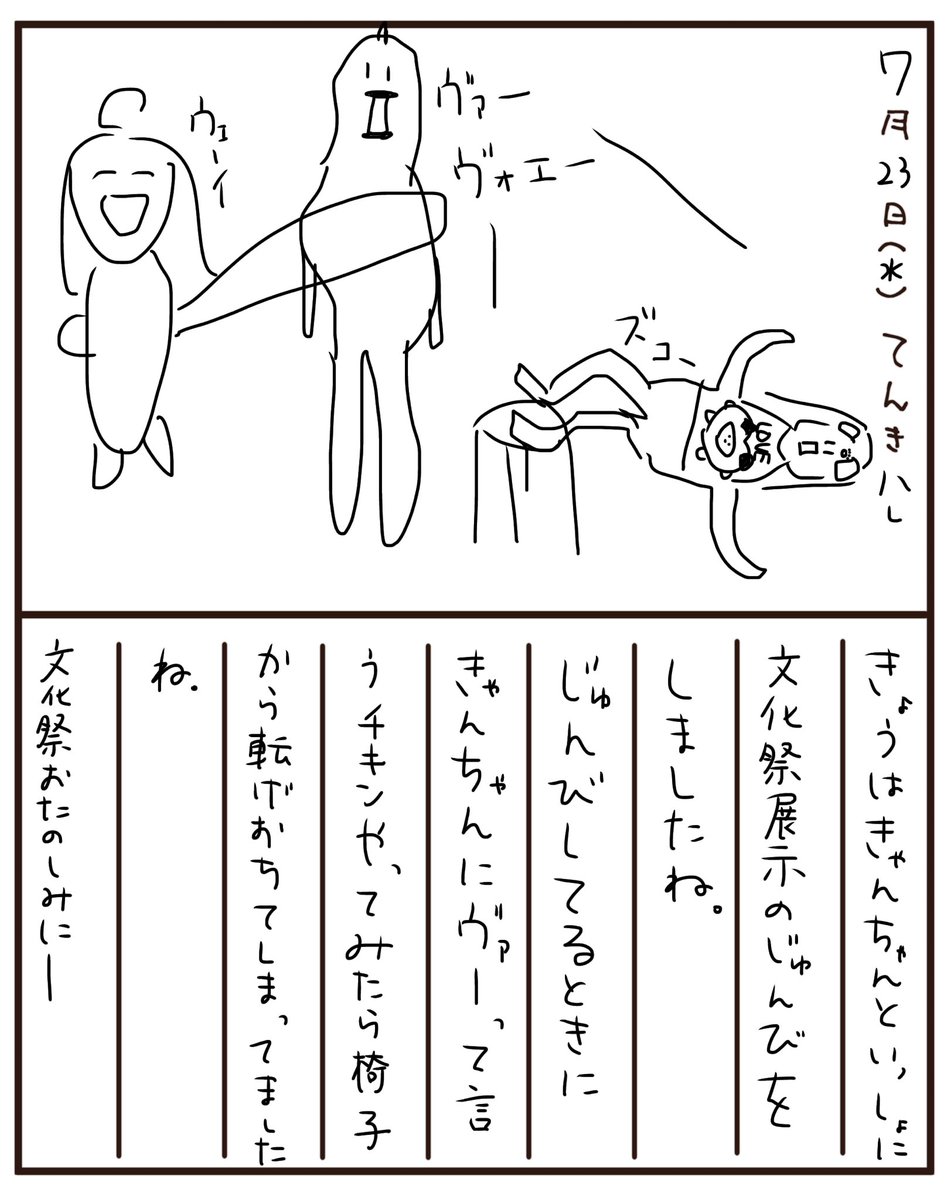 7月23日(水) てんきハレ
ヴァー
ヴォエー
ウェーイ
ズコー
LOVE
きょうはきゃんちゃんといっしょに
文化祭展示のじゅんびを
しましたね。
じゅんびしてるときに
きゃんちゃんにヴァーって言
うチキンやってみたら椅子
から転げおちてしまってました
ね。
文化祭おたのしみにー